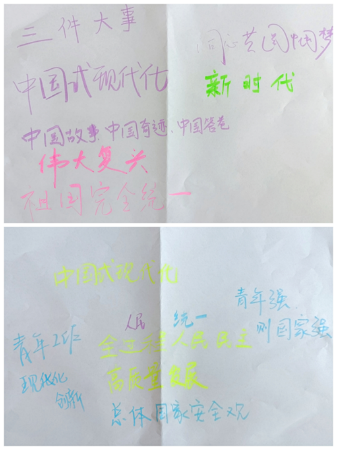 三件大事
同心共圆中国梦
中国式现代化
新时代
中国故事 中国奇迹 中国答卷
伟大复兴
祖国完全统一
中国式现代化
人民 统一
青年强
则国家强
青年工作
全过程人民民主
现代化
创新
高质量发展
总体国家安全观